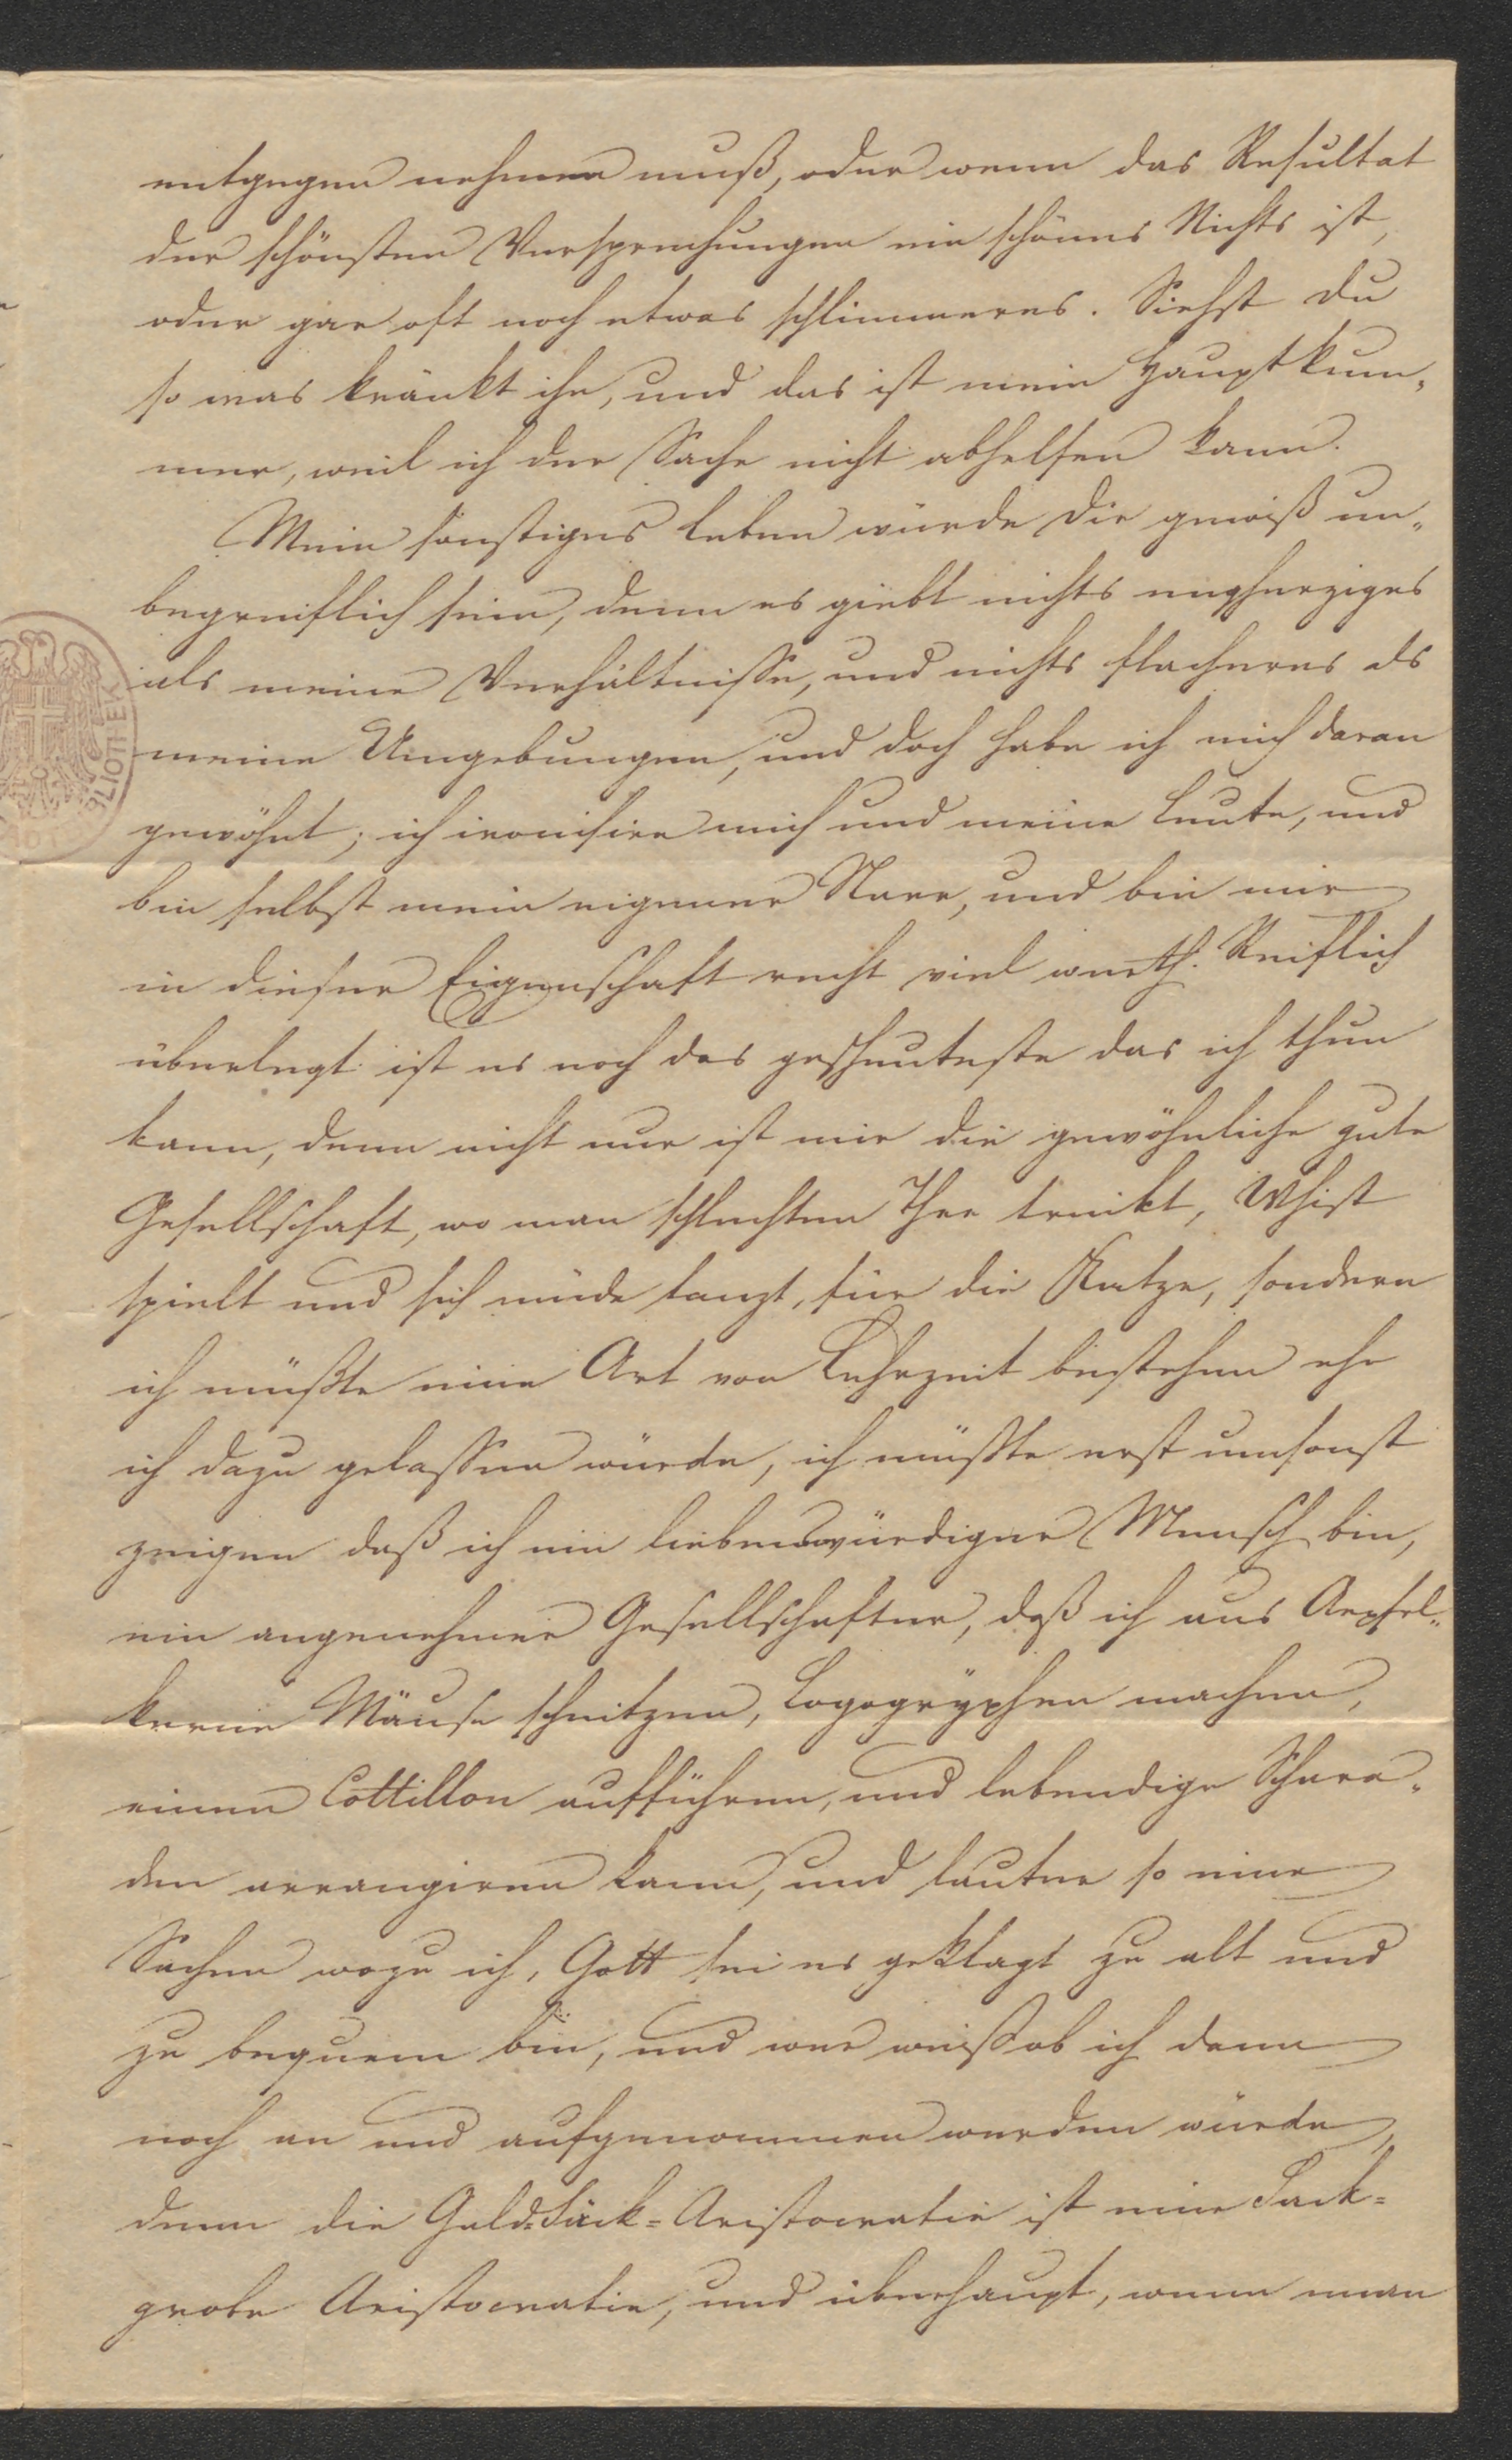 entgegen nehmen muß, oder wenn das Resultat
der schönsten Versprechungen ein schönes Nichts ist,
oder gar oft noch etwas schlimmeres. Siehst du
so was kränkt ihn, und das ist mein Hauptkum-
mer, weil ich der Sache nicht abhelfen kann.
Mein sonstiges Leben würde Dir gewiß un-
begreiflich sein, denn es giebt nichts engherziges
als meine Verhältnisse, und nichts flacheres als
meine Umgebungen, und doch habe ich mich daran
gewöhnt; ich ironisire mich und meine Leute, und
bin selbst mein eigener Narr, und bin mir
in dieser Eigenschaft recht viel werth. Reiflich
überlegt ist es noch das gescheuteste das ich thun
kann, denn nicht nur ist mir die gewöhnliche gute
Gesellschaft, wo man schlechten Thee trinkt, Whist
spielt und sich müde tanzt, für die Katze, sondern
ich müßte eine Art von Lehrzeit bestehen ehe
ich dazu gelassen würde, ich müßte erst umsonst
zeigen daß ich ein liebenswürdiger Mensch bin,
ein angenehmer Gesellschafter, daß ich aus Aepfel-
kerne Mäuse schnitzen, Logogryphen machen,
einen Cottillon aufführen, und lebendige Schara-
den arrangiren kann, und lauter so eine
Sachen wozu ich, Gott sei es geklagt zu alt und
zu bequem bin, und wer weiß ob ich dann
noch an und aufgenommen werden würde,
denn die Geld-Säck-Aristocratie ist eine Sack-
grobe Aristocratie, und überhaupt, wenn man
BIBLIOTHEK